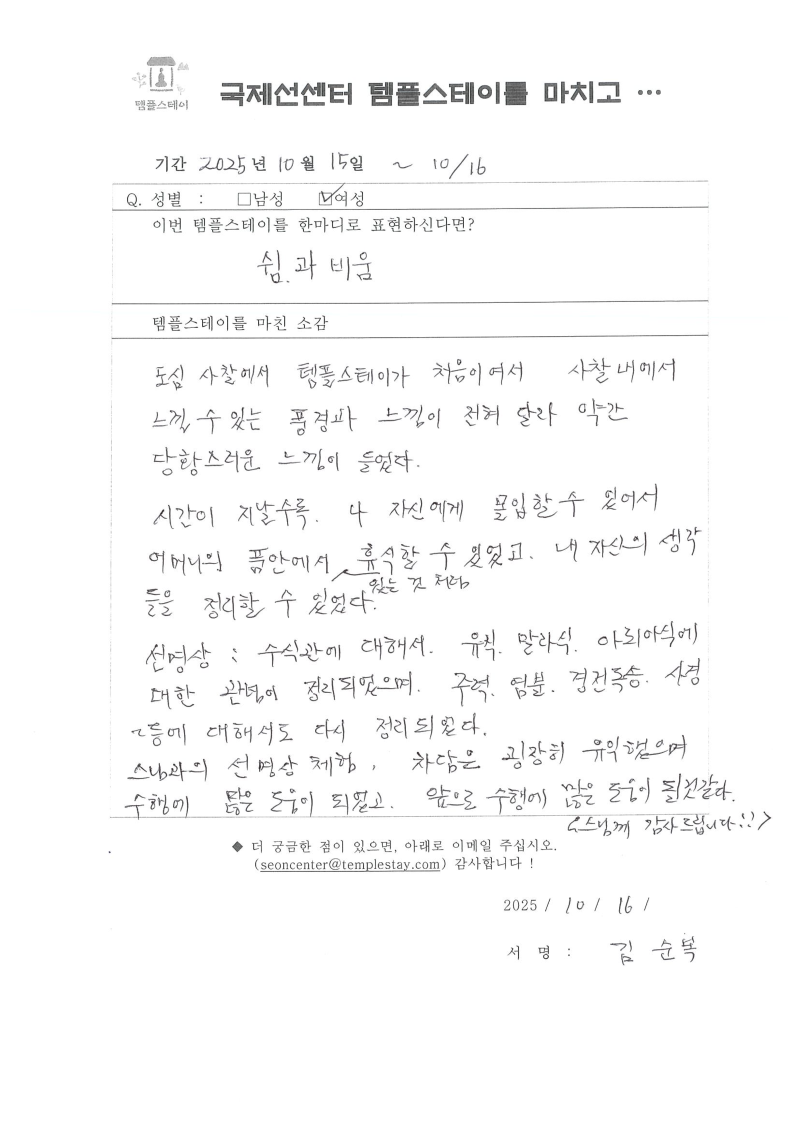 템플스테이
국제선센터 템플스테이를 마치고 …
기간 2025년 10월 15일 ~ 10/16
Q. 성별 : □남성 ☑여성
이번 템플스테이를 한마디로 표현하신다면?
쉼.과 비움
템플스테이를 마친 소감
도심 사찰에서 템플스테이가 처음이여서 사찰 내에서
느낄 수 있는 풍경과 느낌이 전혀 달라 약간
당황스러운 느낌이 들었다.
시간이 지날수록. 나 자신에게 몰입할 수 있어서
어머니의 품안에서 휴식할 수 있었고. 내 자신의 생각
있는 것 처럼
들을 정리할 수 있었다.
선명상 : 수식관에 대해서. 육식. 말라식. 아뢰아식에
대한 관념이 정리되었으며. 주력. 염불. 경전독송. 사경
등에 대해서도 다시 정리되었다.
스님과의 선명상 체험, 차담은 굉장히 유익했으며
수행에 많은 도움이 되었고. 앞으로 수행에 많은 도움이 될것같다.
<스님께 감사드립니다!!>
◆ 더 궁금한 점이 있으면, 아래로 이메일 주십시오.
(seoncenter@templestay.com) 감사합니다 !
2025 / 10 / 16 /
서 명 : 김 순복